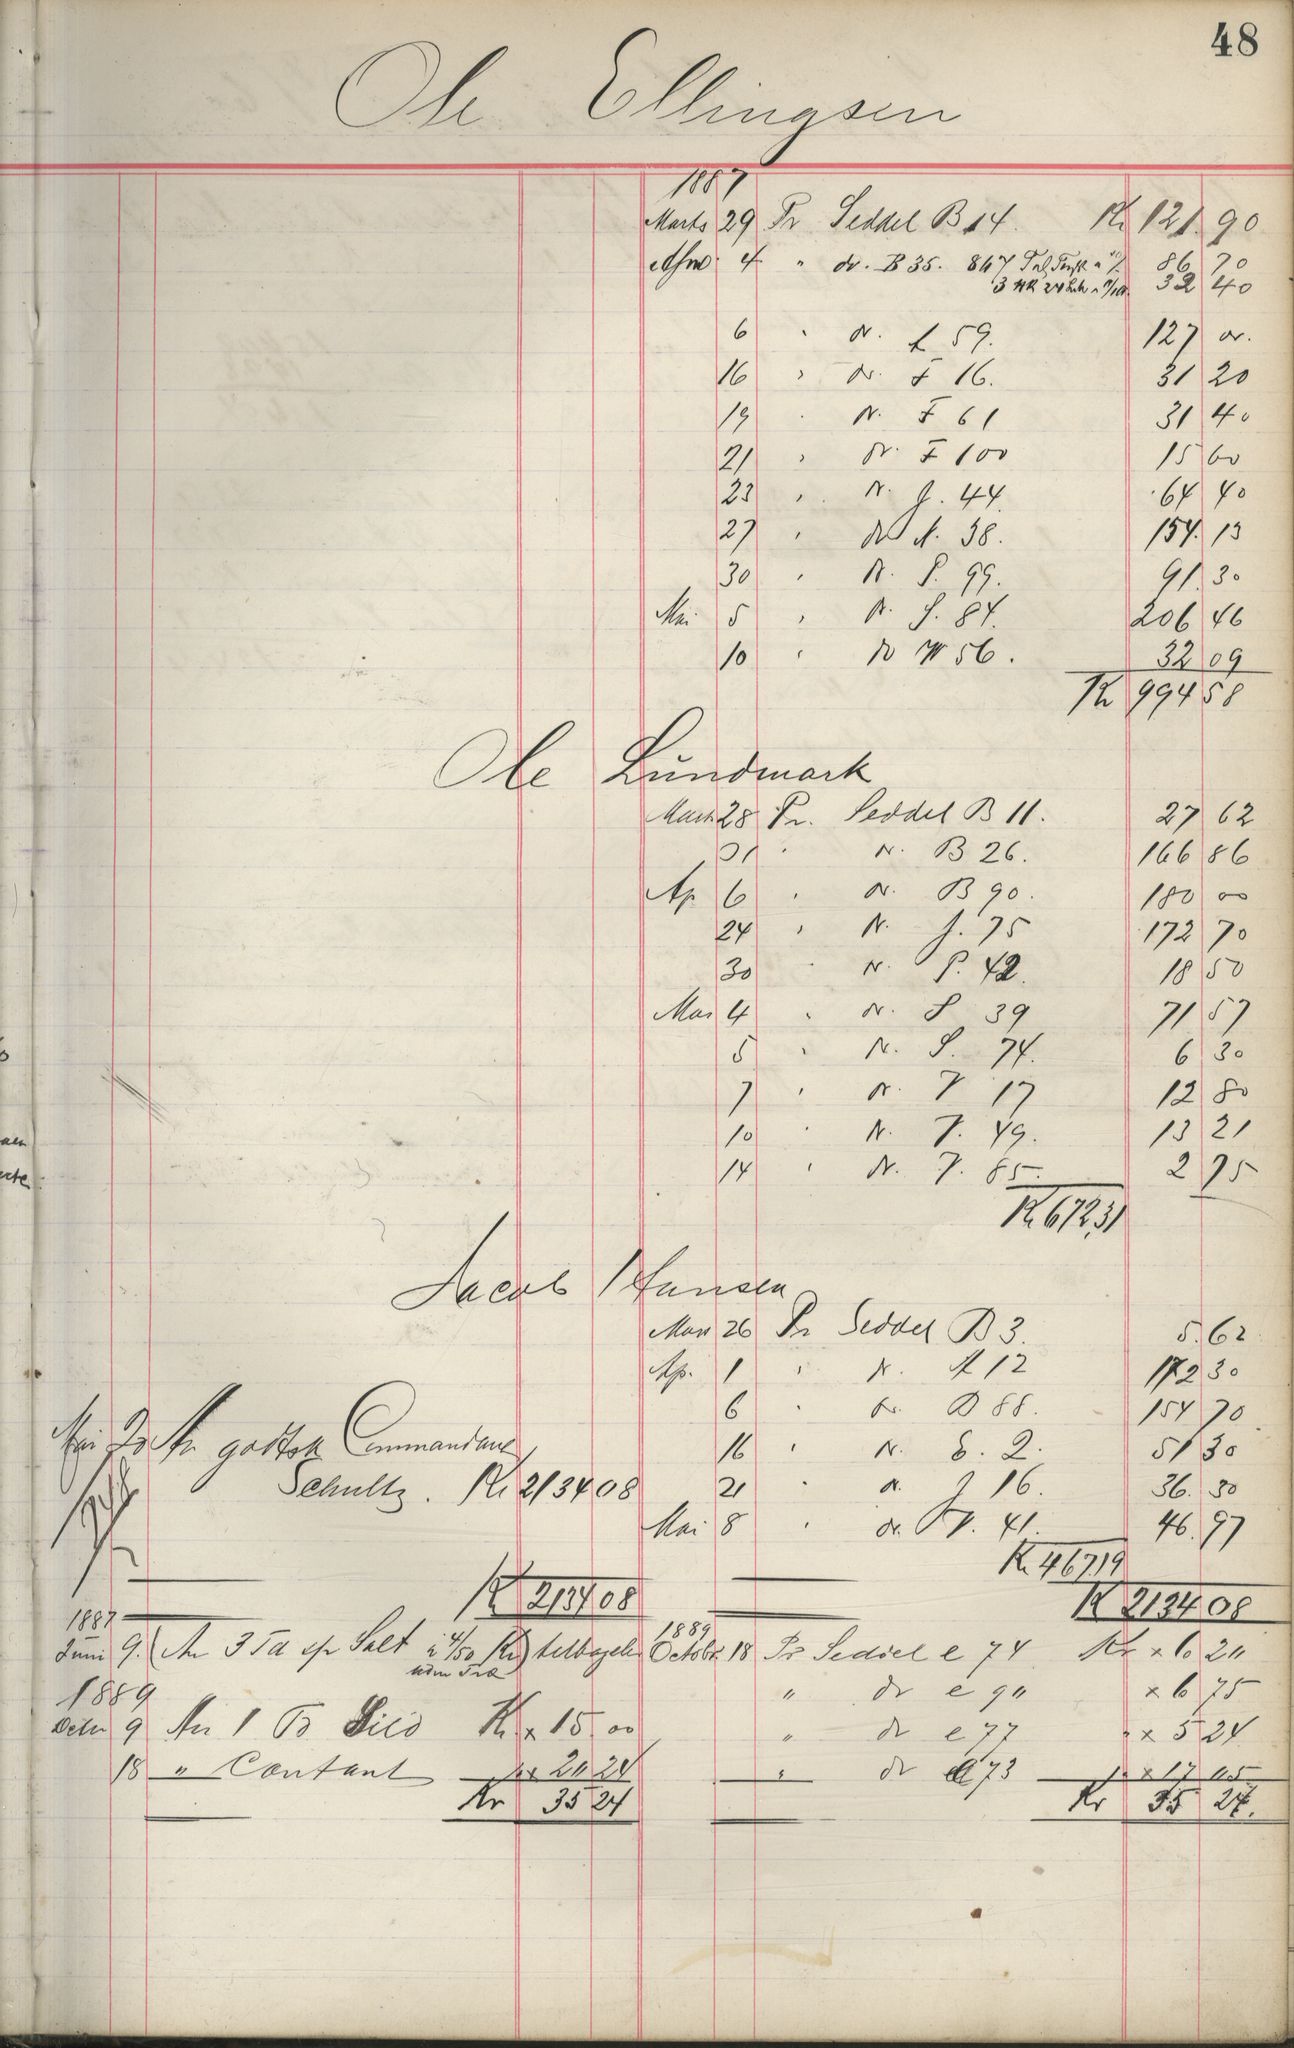 48
Ole Ellingsen
1887
Marts 29 Pr Seddel B 14. Kr 121.90
4 " do. B 35. 867 86 70
32 40
6 " do. 59. 127 00.
16 " do. F 16. 31 20
19 " do. F 61 31 40
21 " do. F 100 15 60
23 " do. J. 44. 64 40
27 " do 38. 154. 13
30 " do. P. 99. 91. 30
Mai 5 " do. S. 84. 206 46
10 " do W 56. 32 09
Kr 994 58
Ole Lundmark
Marts 28 Pr. Seddel B 11. 27 62
31 " do. B 26. 166 86
Ap 6 " do. B 90. 180 00
24 " do. J. 75 172 70
30 " do. P. 42. 18 50
Mai 4 " do. S 39 71 57
5 " do. S. 74. 6 30
7 " do. V 17 12 80
10 " do. V. 49. 13 21
14 " do. V. 85. 2 75
Kr 672,31
Jacob Hansen
Mars 26 Pr Seddel B 3. 5.62
Ap. 1 " do. 12 172 30
6 " do. B 88. 154 70
Mai 20 An godtsk Commandant
16 " do. E. 2. 51 30
Schultz. Kr 2134 08
21 " do. J 16. 36. 30
Mai 8 " do. V. 41. 46. 97
Kr. 467,19
Kr 2134 08 Kr 2134 08
1887
Juni 9. (An 3 Td sp Salt a 4/50 Kr) tilbagelev
uden Træ
1889
Octobr. 18 Pr Seddel e 74 Kr × 6 24
1889
" do e 94 × 6 75
Octbr 9 An 1 To Sild Kr × 15.00
" do e 77 " × 5 24
18 " Contant " × 20 24
" do e 73 " × 17 05
Kr 35 24 Kr 35 24.